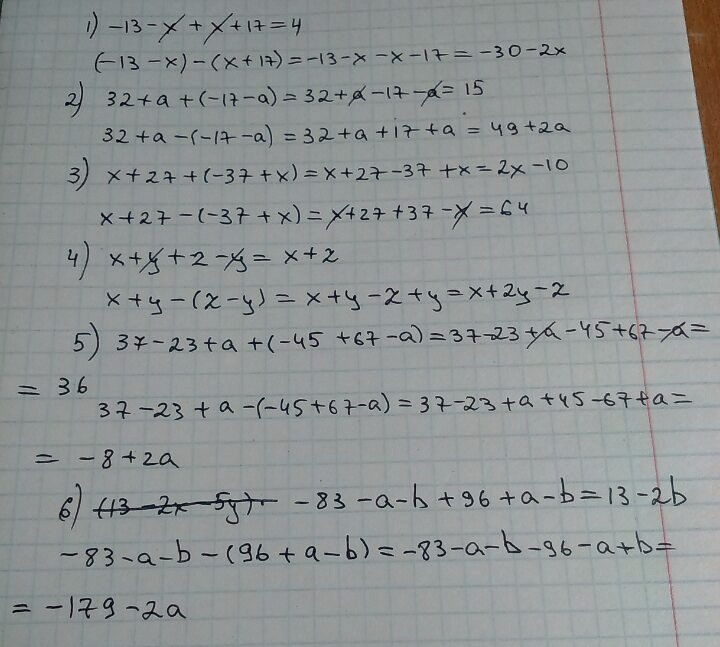 1) -13-x+x+17=4
(-13-x)-(x+17)=-13-x-x-17=-30-2x
2) 32+a+(-17-a)=32+a-17-a=15
32+a-(-17-a)=32+a+17+a=49+2a
3) x+27+(-37+x)=x+27-37+x=2x-10
x+27-(-37+x)=x+27+37-x=64
4) x+y+2-y=x+2
x+y-(2-y)=x+y-2+y=x+2y-2
5) 37-23+a+(-45+67-a)=37-23+a-45+67-a=
= 36
37-23+a-(-45+67-a)=37-23+a+45-67+a=
= -8+2a
6) (13-2x-5y). -83-a-b+96+a-b=13-2b
-83-a-b-(96+a-b)=-83-a-b-96-a+b=
= -179-2a